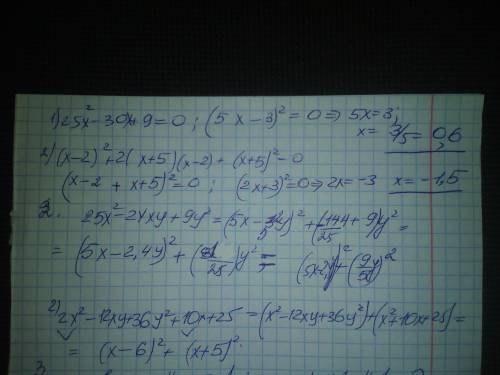 1) 25x² - 30x + 9 = 0 ; (5x - 3)² = 0 ⇒ 5x = 3;
x = 3/5 = 0,6
2) (x-2)² + 2(x+5)(x-2) + (x+5)² = 0
(x-2 + x+5)² = 0 ; (2x+3)² = 0 ⇒ 2x = -3 x = -1,5
2. 25x² - 24xy + 9y² = (5x - 12/5 y)² + (-144/25 + 9)y² =
= (5x - 2,4y)² + (81/25)y² = (5x-2,4y)² + (9y/5)²
2) 2x² - 12xy + 36y² + 10x + 25 = (x² - 12xy + 36y²) + (x² + 10x + 25) =
= (x-6)² + (x+5)²